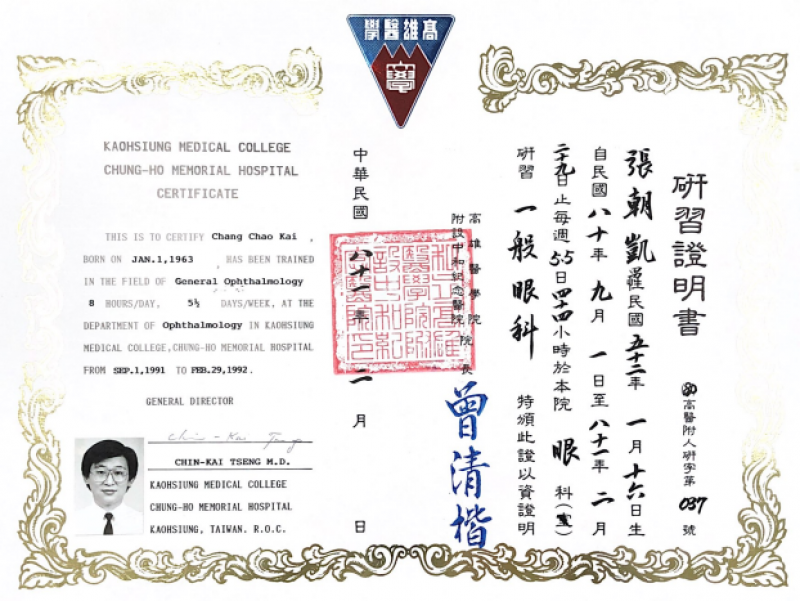 高雄醫學
KAOHSIUNG MEDICAL COLLEGE
CHUNG-HO MEMORIAL HOSPITAL
CERTIFICATE
THIS IS TO CERTIFY Chang Chao Kai ,
BORN ON JAN.1,1963 , HAS BEEN TRAINED
IN THE FIELD OF General Ophthalmology
8 HOURS/DAY, 5½ DAYS/WEEK, AT THE
DEPARTMENT OF Ophthalmology IN KAOHSIUNG
MEDICAL COLLEGE,CHUNG-HO MEMORIAL HOSPITAL
FROM SEP.1,1991 TO FEB.29,1992.
GENERAL DIRECTOR
Chin-Kai Tseng
CHIN-KAI TSENG M.D.
KAOHSIUNG MEDICAL COLLEGE
CHUNG-HO MEMORIAL HOSPITAL
KAOHSIUNG, TAIWAN. R.O.C.
研習證明書
高醫附人研字第 037 號
張朝凱 民國五十二年 一月十六日生
自民國八十年九月一日至八十一年二月
二十九日止每週5.5日四十四小時於本院 眼 科(室)
研習 一般眼科 特頒此證以資證明
高雄醫學院
附設中和紀念醫院 院長 曾清楷
中華民國 八十一年 二月 日